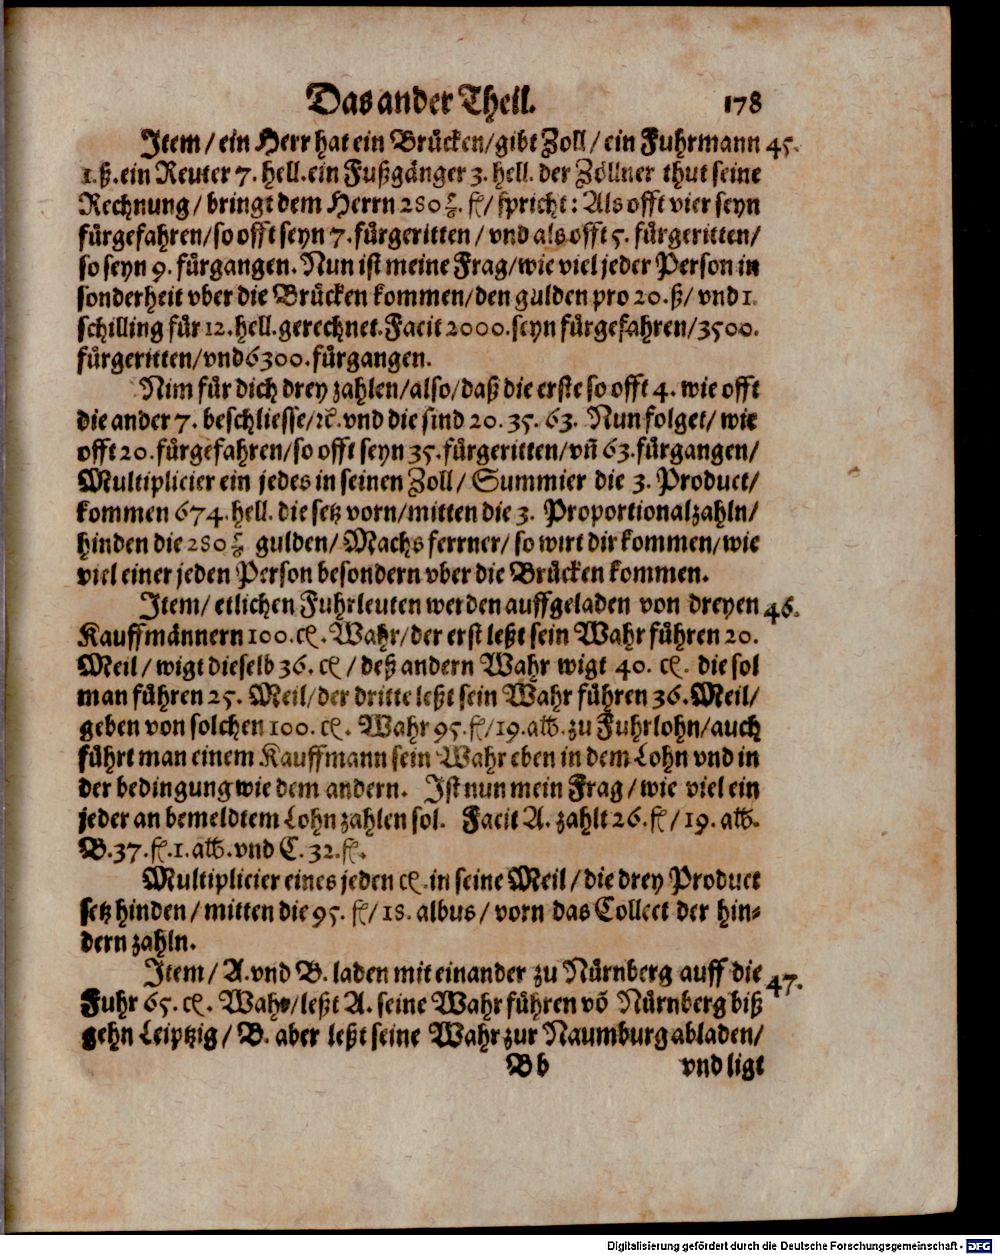 Das ander Theil. 178
Item / ein Herr hat ein Brücken/gibt Zoll / ein Fuhrmann 45.
1.ß.ein Reuter 7. hell.ein Fußgänger 3. hell. der Zöllner thut seine
Rechnung / bringt dem Herrn 280 5/6. fl/ spricht: Als offt vier seyn
fürgefahren/so offt seyn 7.fürgeritten / vnd als offt 5. fürgeritten/
so seyn 9. fürgangen. Nun ist meine Frag/wie viel jeder Person in
sonderheit vber die Brücken kommen/den gulden pro 20.ß/ vnd 1.
schilling für 12.hell.gerechnet.Facit 2000.seyn fürgefahren/3500.
fürgeritten/vnd 6300.fürgangen.
Nim für dich drey zahlen/also/daß die erste so offt 4. wie offt
die ander 7. beschliesse/ꝛc.vnd die sind 20. 35. 63. Nun folget/ wie
offt 20.fürgefahren/so offt seyn 35.fürgeritten/vñ 63.fürgangen/
Multiplicier ein jedes in seinen Zoll/ Summier die 3. Product/
kommen 674.hell. die setz vorn/mitten die 3. Proportionalzahln/
hinden die 280 5/6 gulden/ Machs ferrner/ so wirt dir kommen/wie
viel einer jeden Person besondern vber die Brücken kommen.
Item/ etlichen Fuhrleuten werden auffgeladen von dreyen 46.
Kauffmännern 100.cl. Wahr/der erst leßt sein Wahr führen 20.
Meil / wigt dieselb 36. cl / deß andern Wahr wigt 40. cl. die sol
man führen 25. Meil/der dritte leßt sein Wahr führen 36.Meil/
geben von solchen 100. cl. Wahr 95.fl/19.alb.zu Fuhrlohn/auch
führt man einem Kauffmann sein Wahr eben in dem Lohn vnd in
der bedingung wie dem andern. Ist nun mein Frag / wie viel ein
jeder an bemeldtem Lohn zahlen sol. Facit A. zahlt 26.fl / 19. alb.
B.37.fl.1.alb.vnd C.32.fl.
Multiplicier eines jeden cl.in seine Meil / die drey Product
setz hinden / mitten die 95. fl/ 18. albus / vorn das Collect der hin⸗
dern zahln.
Item/ A.vnd B. laden mit einander zu Nürnberg auff die 47.
Fuhr 65. cl. Wahr/leßt A. seine Wahr führen võ Nürnberg biß
gehn Leiptzig / B. aber leßt seine Wahr zur Naumburg abladen/
B b vnd ligt
Digitalisierung gefördert durch die Deutsche Forschungsgemeinschaft - DFG